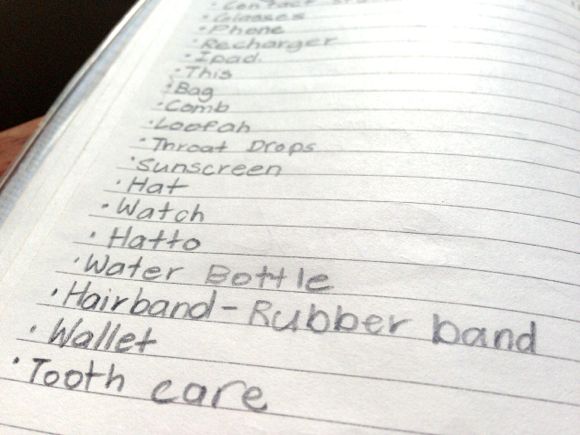 · Contact
· Glasses
· Phone
· Recharger
· Ipad
· This
· Bag
· Comb
· Loofah
· Throat Drops
· Sunscreen
· Hat
· Watch
· Hatto
· Water Bottle
· Hairband - Rubber band
· Wallet
· Tooth care